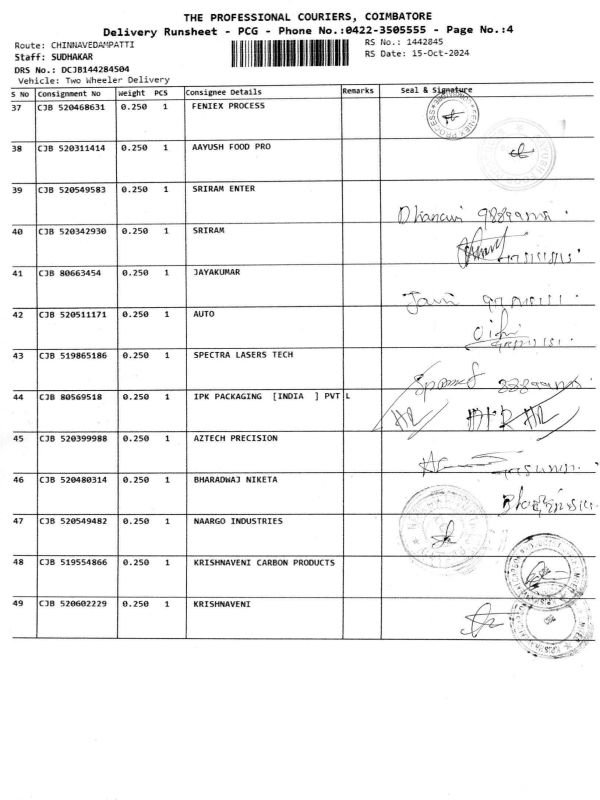 THE PROFESSIONAL COURIERS, COIMBATORE
Delivery Runsheet - PCG - Phone No.:0422-3505555 - Page No.:4
Route: CHINNAVEDAMPATTI
RS No.: 1442845
Staff: SUDHAKAR
RS Date: 15-Oct-2024
DRS No.: DCJB144284504
Vehicle: Two Wheeler Delivery
S No Consignment No Weight PCS Consignee Details Remarks Seal & Signature
37 CJB 520468631 0.250 1 FENIEX PROCESS
38 CJB 520311414 0.250 1 AAYUSH FOOD PRO
39 CJB 520549583 0.250 1 SRIRAM ENTER
40 CJB 520342930 0.250 1 SRIRAM
41 CJB 80663454 0.250 1 JAYAKUMAR
42 CJB 520511171 0.250 1 AUTO
43 CJB 519865186 0.250 1 SPECTRA LASERS TECH
44 CJB 80569518 0.250 1 IPK PACKAGING [INDIA ] PVT L
45 CJB 520399988 0.250 1 AZTECH PRECISION
46 CJB 520480314 0.250 1 BHARADWAJ NIKETA
47 CJB 520549482 0.250 1 NAARGO INDUSTRIES
48 CJB 519554866 0.250 1 KRISHNAVENI CARBON PRODUCTS
49 CJB 520602229 0.250 1 KRISHNAVENI